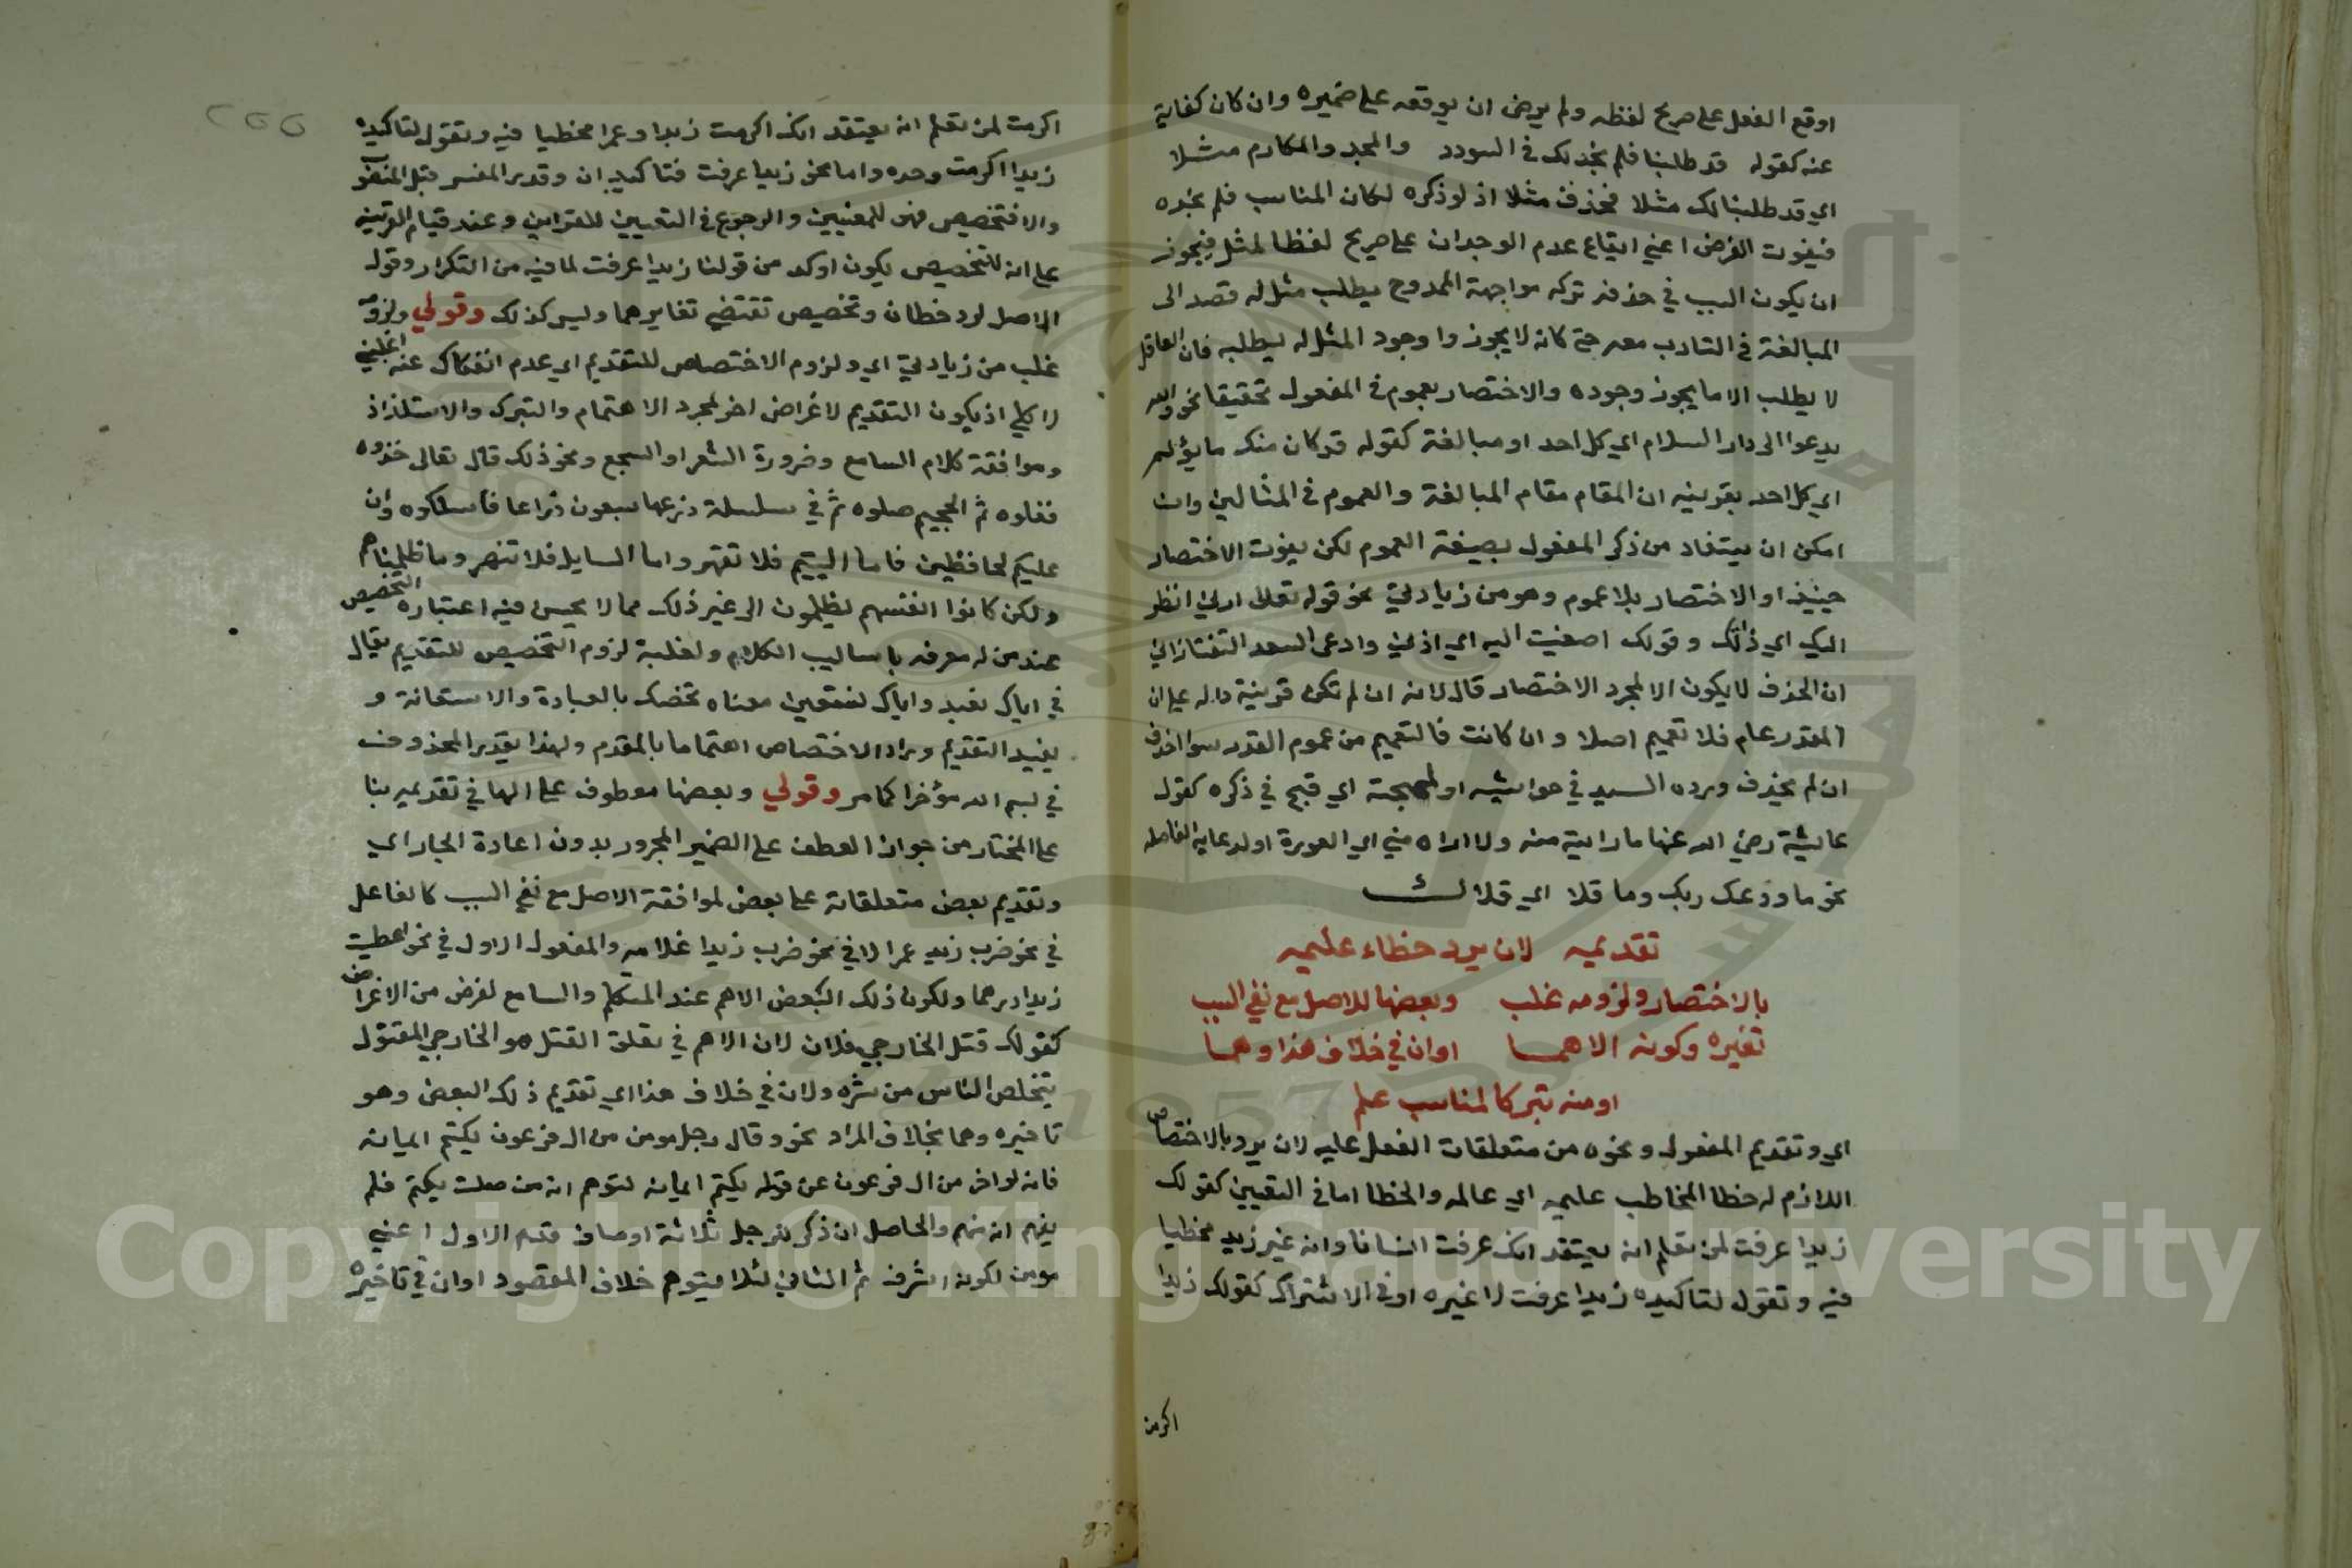 اوقع الفعل على صريح لفظه ولم يرض ان يوقعه على ضميره وان كان كفاية
عنه كقوله قد طلبنا فلم نجد لك في السودد والمجد والمكارم مثلا
اي قد طلبنا لك مثلا فحذف مثلا اذ لو ذكره لكان المناسب فلم نجده
فيفوت الغرض اعني ايقاع عدم الوجدان على صريح لفظ المثل فيجوز
ان يكون السبب في حذفه تركه مواجهة الممدوح بطلب مثل له قصد الى
المبالغة في التادب معه حتى كانه لا يجوز وجود المثل له ليطلبه فان العاقل
لا يطلب الا ما يجوز وجوده والاختصار بعموم في المفعول تحقيقا نحو والله
يدعوا الى دار السلام اي كل احد او مبالغة كقوله قد كان منك ما يؤلم
اي كل احد بقرينة ان المقام مقام المبالغة والعموم في المثالين وان
امكن ان يستفاد من ذكر المفعول بصيغة العموم لكن يفوت الاختصار
حينيذ او الاختصار بلا عموم وهو من زيادتي نحو قوله تعالى ارني انظر
اليك اي ذاتك وقولك اصغيت اليه اي اذني وادعى السعد التفتازاني
ان الحذف لا يكون الا لمجرد الاختصار قال لانه ان لم تكن قرينة داله على ان
المقدر عام فلا تعميم اصلا وان كانت فالتعميم من عموم المقدر سوا حذف
ان لم يحذف ورده السيد في حواشيه او لهجنة اي قبح في ذكره كقول
عايشة رضي الله عنها ما رايت منه ولا اراه مني اي العورة او لرعاية الفاصله
نحو ما ودعك ربك وما قلا اي قلاك
تقديمه لان يرد خطاء عليمه
بالاختصار ولزومه غلب وبعضها للاصل مع نفي السبب
تغيره وكونه الاهما او ان في خلاف هذا وهما
او منه تبركا لمناسب علم
اي وتقديم المفعول ونحوه من متعلقات الفعل عليه لان يرد بالاختصاص
اللازم له خطا المخاطب عليمه اي عالمه والخطا اما في التعيين كقولك
زيدا عرفت لمن تعلم انه يعتقد انك عرفت انسانا وانه غير زيد مخطيا
فيه وتقول لتاكيده زيدا عرفت لا غيره او في الاشتراك كقولك زيدا
اكرمت
اكرمت لمن تعلم انه يعتقد انك اكرمت زيدا وعمرا مخطيا فيه وتقول لتاكيده
زيدا اكرمت وحده واما نحو زيدا عرفت فتاكيد ان وقدر المفسر قبل المنصوب
والا فتخصيص فهو للمعنيين والرجوع في التعيين للقراين وعند قيام القرينة
على انه للتخصيص يكون اوكد من قولنا زيدا عرفت لما فيه من التكرار وقول
الاصل لرد خطا وتخصيص تقتضي تغايرهما وليس كذلك وقولي ولزومه
غلب من زيادتي اي ولزوم الاختصاص للتقديم اي عدم انفكاك عنه اغلبي
لا كلي اذ يكون التقديم لاغراض اخر لمجرد الاهتمام والتبرك والاستلذاذ
وموافقة كلام السامع وضرورة الشعر او السجع ونحو ذلك قال تعالى خذوه
فغلوه ثم الجحيم صلوه ثم في سلسلة ذرعها سبعون ذراعا فاسلكوه وان
عليكم لحافظين فاما اليتيم فلا تقهر واما السايل فلا تنهر وما ظلمناهم
ولكن كانوا انفسهم يظلمون الى غير ذلك مما لا يحسن فيه اعتبار التخصيص
عند من له معرفه باساليب الكلام ولغلبة لزوم التخصيص للتقديم يقال
في اياك نعبد واياك نستعين معناه نخصك بالعبادة والاستعانة و
يفيد التقديم وراد الاختصاص اهتماما بالمقدم ولهذا يقدر المحذوف
في بسم الله مؤخرا كما مر وقولي وبعضها معطوف على الها في تقديمه بنا
على المختار من جواز العطف على الضمير المجرور بدون اعادة الجار اي
وتقديم بعض متعلقاته على بعض لموافقة الاصل مع نفي السبب كالفاعل
في نحو ضرب زيد عمرا لا في نحو ضرب زيدا غلامه والمفعول الاول في نحو اعطيت
زيدا درهما ولكون ذلك البعض الاهم عند المتكلم والسامع لغرض من الاغراض
كقولك قتل الخارجي فلان لان الاهم في تعلق القتل هو الخارجي المقتول
يتخلص الناس من شره ولان في خلاف هذا اي تقديم ذلك البعض وهو
تاخيره وهما بخلاف المراد نحو وقال رجل مومن من ال فرعون يكتم ايمانه
فانه لو اخر من ال فرعون عن قوله يكتم ايمانه لتوهم انه من صلت يكتم فلم
يفهم انه منهم والحاصل ان ذكر للرجل ثلاثة اوصاف قدم الاول اعني
مومن لكونه اشرف ثم الثاني لئلا يتوهم خلاف المقصود او ان في تاخيره
Copyright © King Saud University
1957